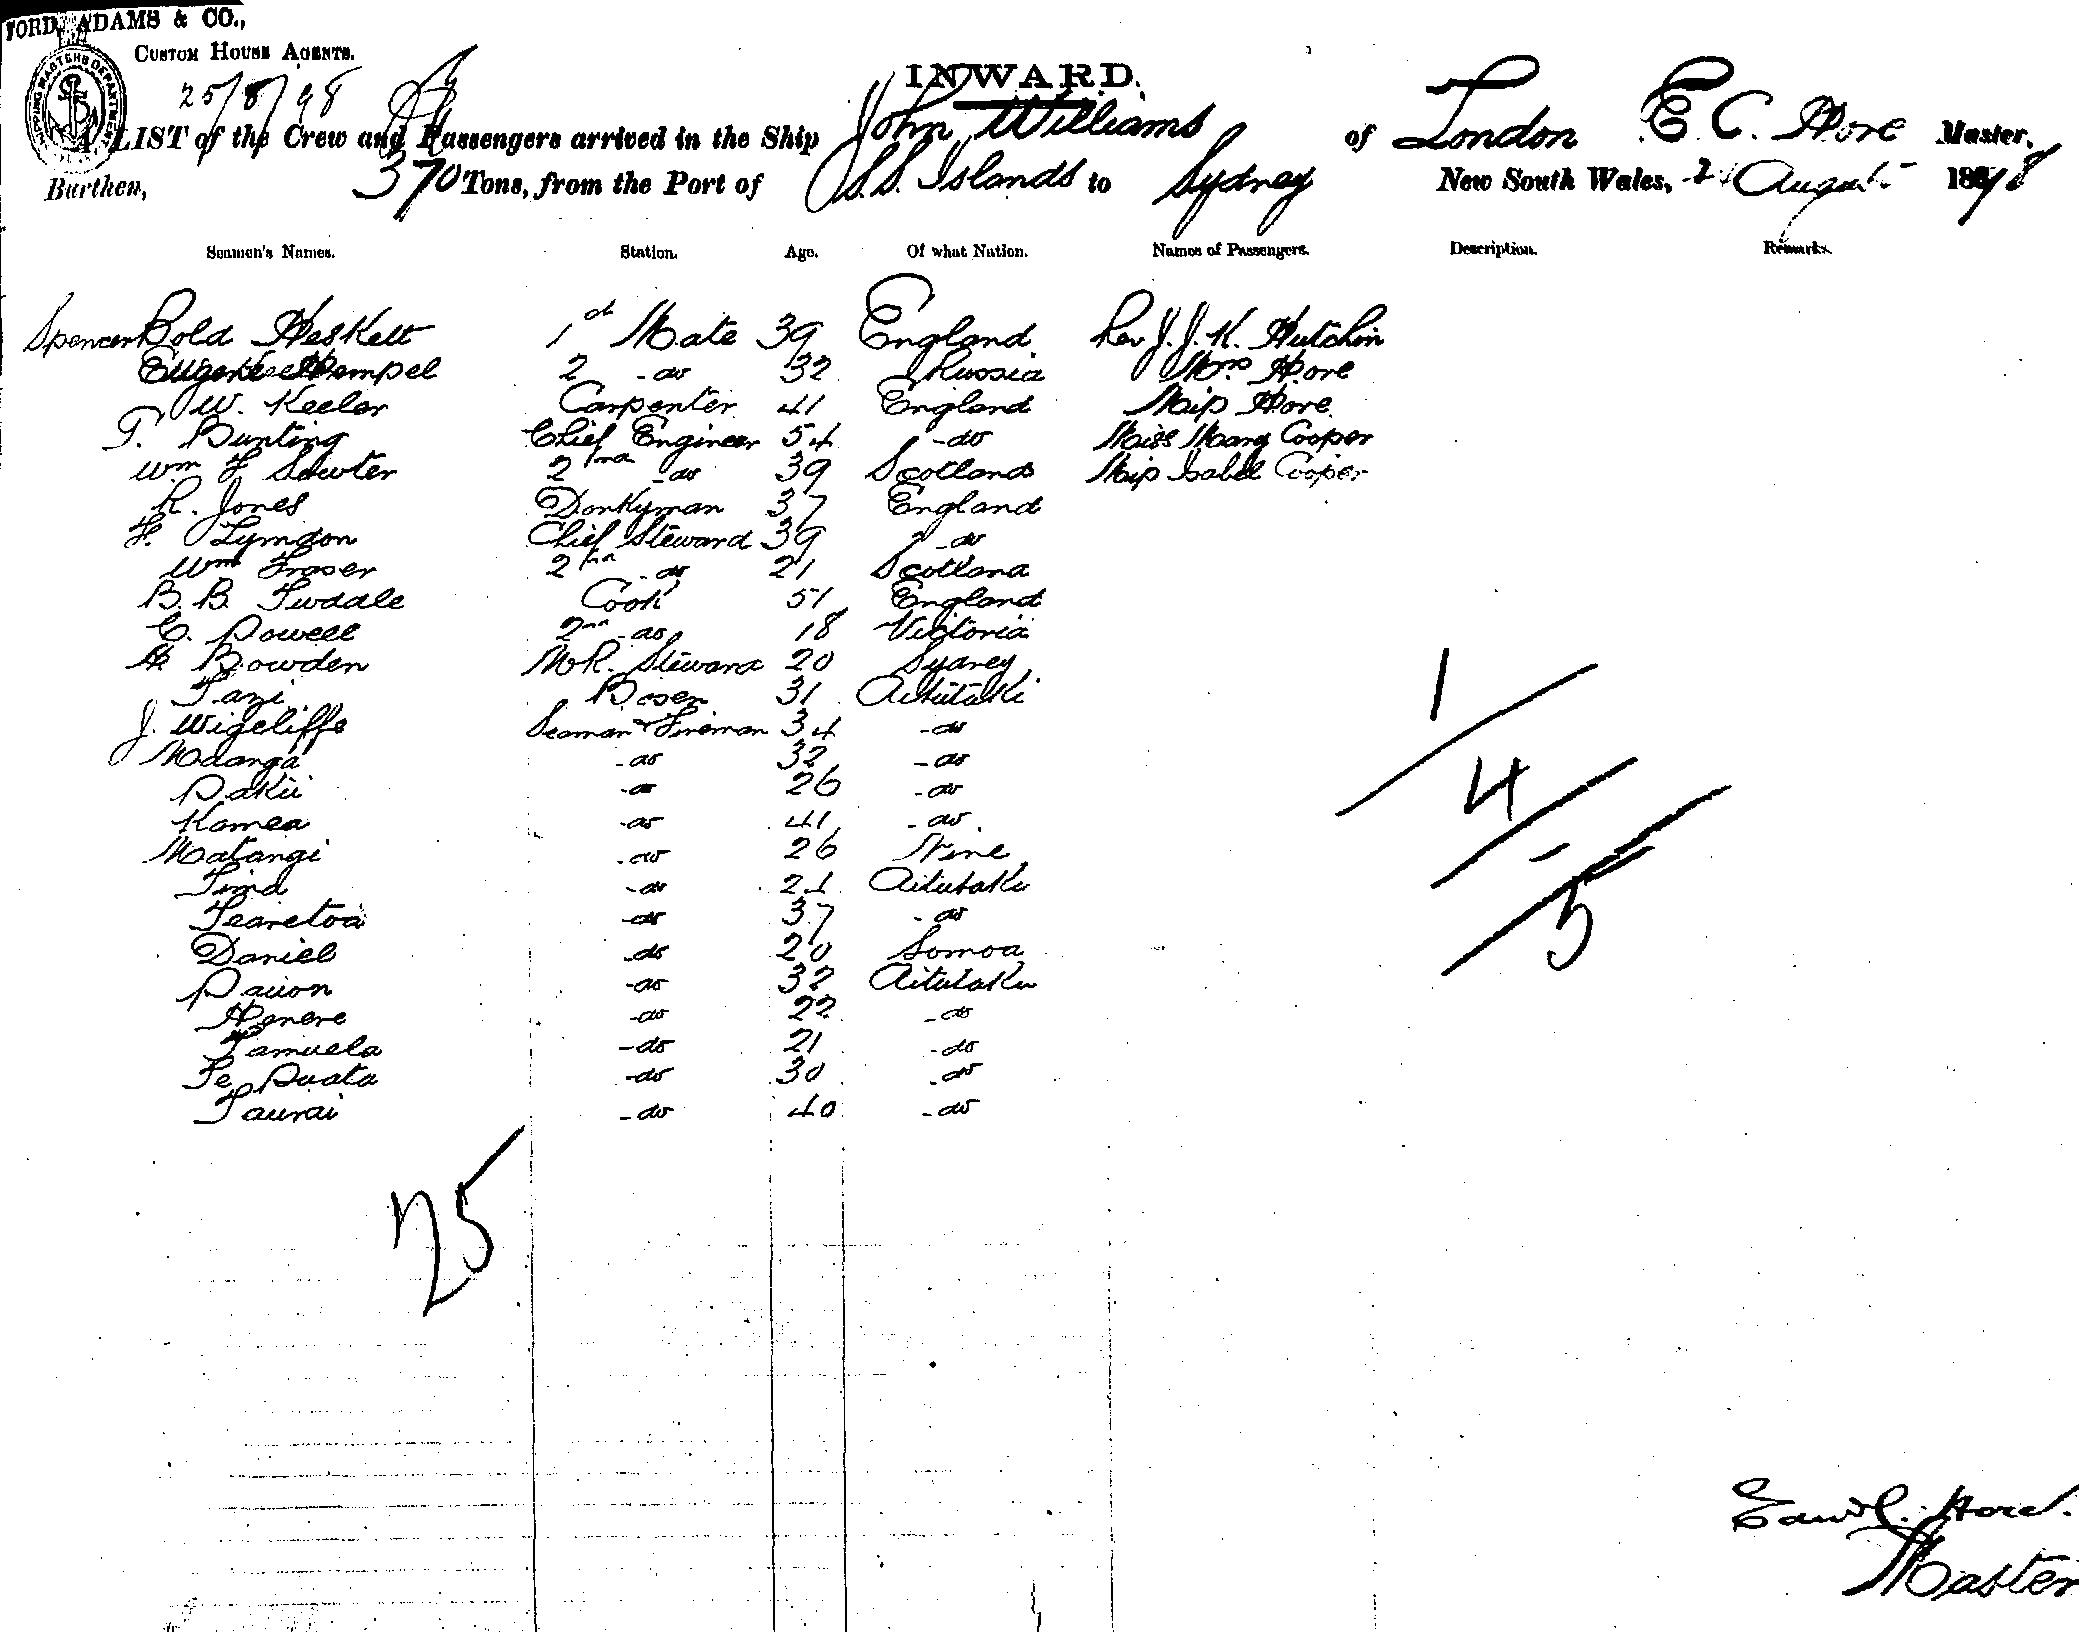 FORD, ADAMS & CO.,
CUSTOM HOUSE AGENTS.
25/8/98
INWARD.
A LIST of the Crew and Passengers arrived in the Ship John Williams of London E. C. Hore Master,
Burthen, 370 Tons, from the Port of S.S. Islands to Sydney New South Wales, August 1898
Seamen's Names. Station. Age. Of what Nation. Names of Passengers. Description. Remarks.
Spencer Bold Heskett 1st Mate 39 England Rev J. J. K. Hutchin
Eugene Hempel 2 - do 32 Russia Mrs Hore
W. Keeler Carpenter 41 England Miss Hore
T. Bunting Chief Engineer 54 - do Miss Mary Cooper
Wm F Sawter 2nd - do 39 Scotland Miss Isabel Cooper
R. Jones Donkyman 37 England
F. Lymdon Chief Steward 39 - do
Wm Fraser 2nd - do 21 Scotland
B. B. Twddle Cook 51 England
C. Powell 2nd - do 18 Victoria
H Bowden M.R. Steward 20 Sydney
Tani Bosen 31 Aitutaki
J. Wigcliffe Seaman & Fireman 34 - do
Mdanga - do 32 - do
Pakii - do 26 - do
Kamea - do 41 - do
Matangi - do 26 Nine
Tima - do 21 Aitutaki
Tearetoa - do 37 - do
Daniel - do 20 Somoa
Pauon - do 32 Aitutaki
Henere - do 22 - do
Tamuela - do 21 - do
Te Puata - do 30 - do
Taurai - do 40 - do
1
4
5
25
Edwd C. Hore.
Master